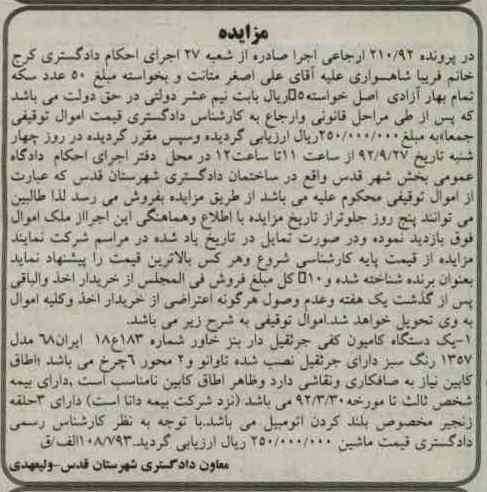 مزایده
در پرونده ۲۱۰/۹۲ ارجاعی اجرا صادره از شعبه ۲۷ اجرای احکام دادگستری کرج
خانم فریبا شاهسواری علیه آقای علی اصغر متانت و بخواسته مبلغ ۵۰ عدد سکه
تمام بهار آزادی اصل خواسته ۵٪ریال بابت نیم عشر دولتی در حق دولت می باشد
که پس از طی مراحل قانونی وارجاع به کارشناس دادگستری قیمت اموال توقیفی
جمعا»به مبلغ ۲۵۰/۰۰۰/۰۰۰ریال ارزیابی گردیده وسپس مقرر گردیده در روز چهار
شنبه تاریخ ۹۲/۹/۲۷ از ساعت ۱۱تا ساعت۱۲ در محل دفتر اجرای احکام دادگاه
عمومی بخش شهر قدس واقع در ساختمان دادگستری شهرستان قدس که عبارت
از اموال توقیفی محکوم علیه می باشد از طریق مزایده بفروش می رسد لذا طالبین
می توانند پنج روز جلوتراز تاریخ مزایده با اطلاع وهماهنگی این اجرااز ملک اموال
فوق بازدید نموده ودر صورت تمایل در تاریخ یاد شده در مراسم شرکت نمایند
مزایده از قیمت پایه کارشناسی شروع وهر کس بالاترین قیمت را پیشنهاد نماید
بعنوان برنده شناخته شده و۱۰٪ کل مبلغ فروش فی المجلس از خریدار اخذ والباقی
پس از گذشت یک هفته وعدم وصول هرگونه اعتراضی از خریدار اخذ وکلیه اموال
به وی تحویل خواهد شد.اموال توقیفی به شرح زیر می باشد.
۱-یک دستگاه کامیون کفی جرثقیل دار بنز خاور شماره ۱۸۳ع۱۸ ایران۶۸ مدل
۱۳۵۷ رنگ سبز دارای جرثقیل نصب شده تاوانو و۲ محور ۶چرخ می باشد ،اطاق
کابین نیاز به صافکاری ونقاشی دارد وظاهر اطاق کابین نامناسب است ،دارای بیمه
شخص ثالث تا مورخه ۹۲/۳/۳۰ می باشد (نزد شرکت بیمه دانا است) دارای ۳حلقه
زنجیر مخصوص بلند کردن اتومبیل می باشد.با توجه به نظر کارشناس رسمی
دادگستری قیمت ماشین ۲۵۰/۰۰۰/۰۰۰ ریال ارزیابی گردید.۱۰۸/۷۹۳/الف/ق
معاون دادگستری شهرستان قدس-ولیعهدی